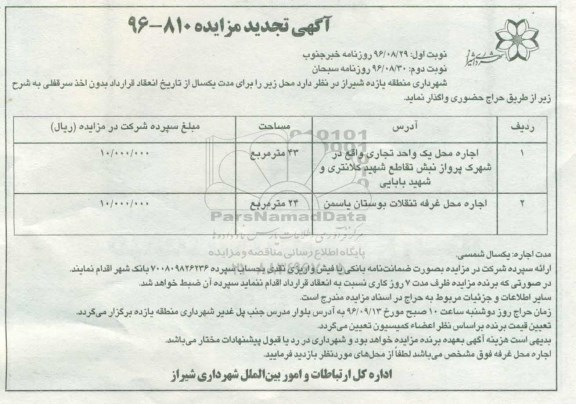 آگهی تجدید مزایده ۸۱۰-۹۶
نوبت اول: ۹۶/۰۸/۲۹ روزنامه خبرجنوب
نوبت دوم: ۹۶/۰۸/۳۰ روزنامه سبحان
شهرداری منطقه یازده شیراز در نظر دارد محل زیر را برای مدت یکسال از تاریخ انعقاد قرارداد بدون اخذ سرقفلی به شرح
زیر از طریق حراج حضوری واگذار نماید.
ردیف آدرس مساحت مبلغ سپرده شرکت در مزایده (ریال)
۱ اجاره محل یک واحد تجاری واقع در شهرک پرواز نبش تقاطع شهید کلانتری و شهید بابایی ۴۳ مترمربع ۱۰/۰۰۰/۰۰۰
۲ اجاره محل غرفه تنقلات بوستان یاسمن ۲۴ مترمربع ۱۰/۰۰۰/۰۰۰
ParsNamadData
پایگاه اطلاع رسانی مناقصه و مزایده
مدت اجاره: یکسال شمسی.
ارائه سپرده شرکت در مزایده بصورت ضمانت‌نامه بانکی یا فیش واریزی نقدی بحساب سپرده ۷۰۰۸۰۹۸۲۶۲۳۶ بانک شهر اقدام نمایند.
در صورتی که برنده مزایده ظرف مدت ۷ روز کاری نسبت به انعقاد قرارداد اقدام ننماید سپرده آن ضبط خواهد شد.
سایر اطلاعات و جزئیات مربوط به حراج در اسناد مزایده مندرج است.
زمان حراج روز دوشنبه ساعت ۱۰ صبح مورخ ۹۶/۰۹/۱۳ به آدرس بلوار مدرس جنب پل غدیر شهرداری منطقه یازده برگزار می‌گردد.
تعیین قیمت برنده براساس نظر اعضاء کمیسیون تعیین می‌گردد.
بدیهی است هزینه آگهی بعهده برنده مزایده خواهد بود و شهرداری در رد یا قبول پیشنهادات مختار می‌باشد.
اجاره محل غرفه فوق مشخص می‌باشد لطفاً از محل‌های موردنظر بازدید فرمایید.
اداره کل ارتباطات و امور بین‌الملل شهرداری شیراز